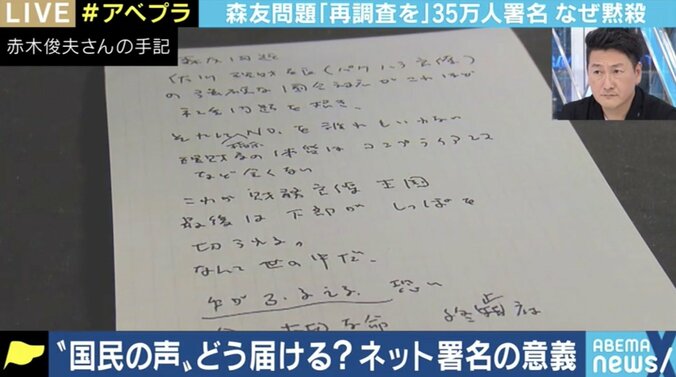 LIVE
#アベプラ
森友問題「再調査を」35万人署名 なぜ黙殺
赤木俊夫さんの手記
森友問題
佐川理財局長(パワハラ官僚)
の強硬な国会対応がこれほど
社会問題を招き、
それにNO.を誰もいわない
理財局の体質はコンプライアンス
など全くない
これが財務官僚王国
最後は下部がしっぽを
切られる。
なんて世の中だ、
手がふるえる、恐い
命 大切な命 終止符
〝国民の声〟どう届ける?ネット署名の意義
ABEMA
NEWS